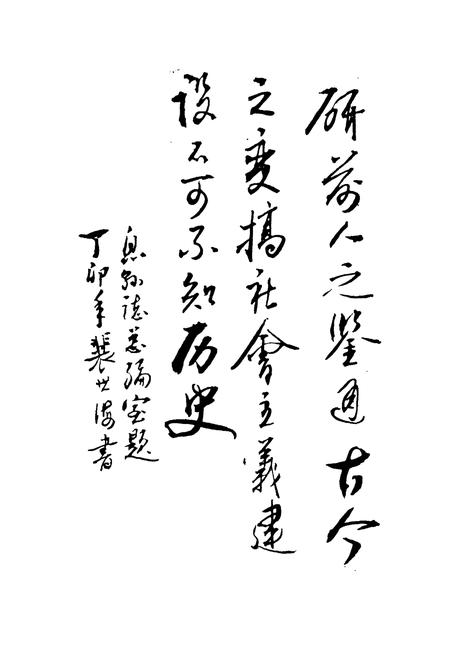 研前人之鉴通古今
之变搞社會主義建
设不可不知历史
息县志总编室题
丁卯年裴世海書